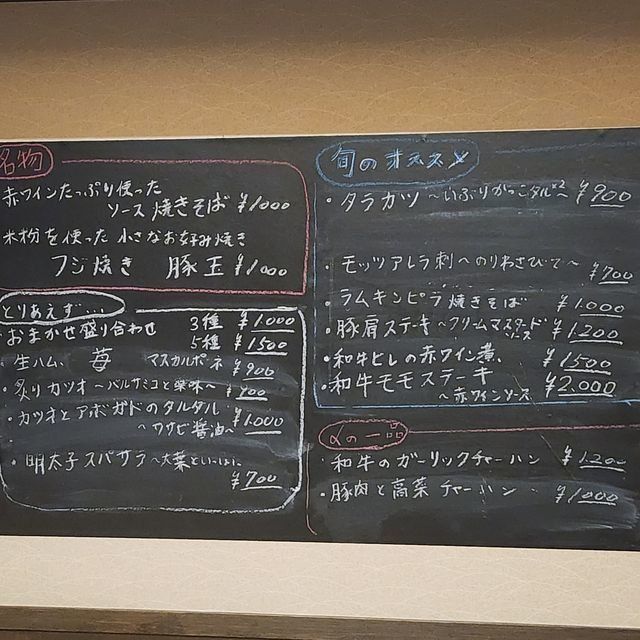 名物
赤ワインたっぷり使った
ソース焼きそば ¥1000
米粉を使った小さなお好み焼き
フジ焼き 豚玉 ¥1000
とりあえず…
おまかせ盛り合わせ 3種 ¥1000
5種 ¥1500
・生ハム、苺 マスカルポーネ ¥900
・炙りカツオ〜バルサミコと薬味〜 ¥900
・カツオとアボガドのタルタル
〜ワサビ醤油〜 ¥1,000
・明太子スパサラ〜大葉といっしょに
¥700
旬のオススメ
・タラカツ〜いぶりがっこタル×2〜 ¥900
・モッツアレラ刺〜のりわさびで〜 ¥700
・ラムキンピラ焼きそば ¥1000
・豚肩ステーキ〜クリームマスタードソース ¥1,200
・和牛ヒレの赤ワイン煮 ¥1500
・和牛モモステーキ ¥2,000
〜赤ワインソース
〆の一品
・和牛のガーリックチャーハン ¥1,200
・豚肉と高菜チャーハン ¥1000